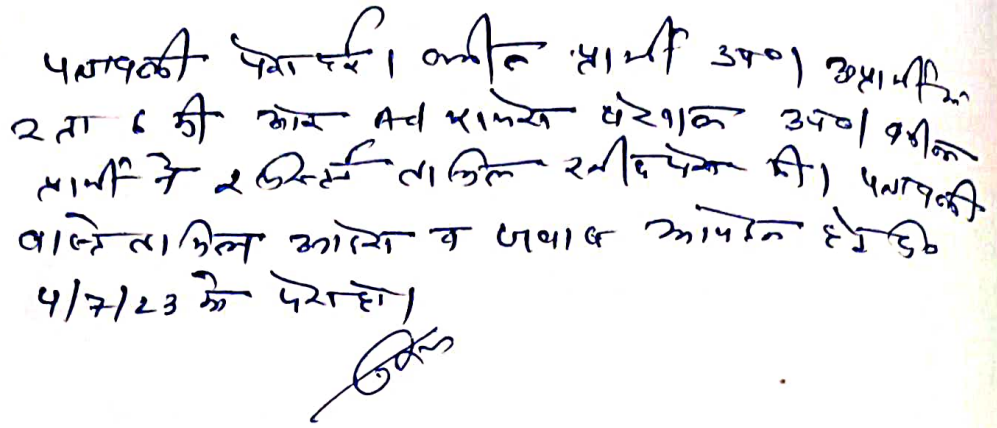 पत्रावली पेश हुई। वकील प्रार्थी उप०। अप्रार्थी सं०
2 ता 6 की ओर Ad उप०। वकील
प्रार्थी ने रजिस्टर्ड तामिल रसीद पेश की। पत्रावली
वास्ते तामिल व जवाब आवेदन हेतु दि०
4/7/23 को पेश हो।